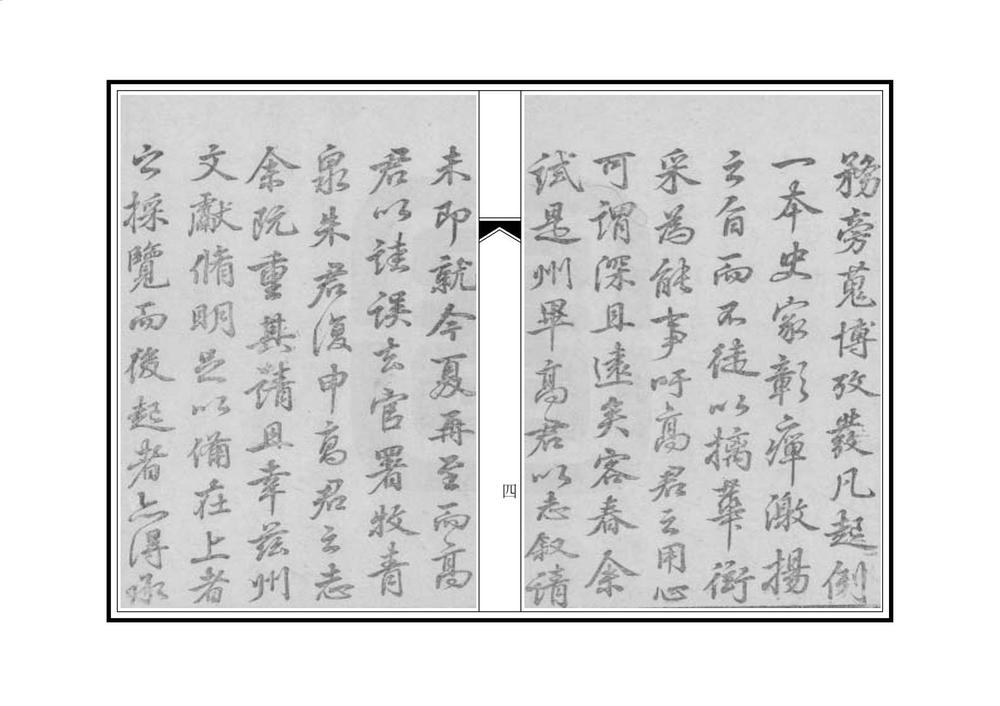 務旁蒐博攷發凡起例
一本史家彰癉激揚
之旨而不徒以摛華銜
采為能事吁高君之用心
可謂深且遠矣客春余
試是州畢高君以志叙請
四
未即就今夏再至而高
君以詿誤去官署牧青
泉朱君復申高君之志
余既重其請且幸茲州
文獻脩明足以備在上者
之採覽而後起者亦得承